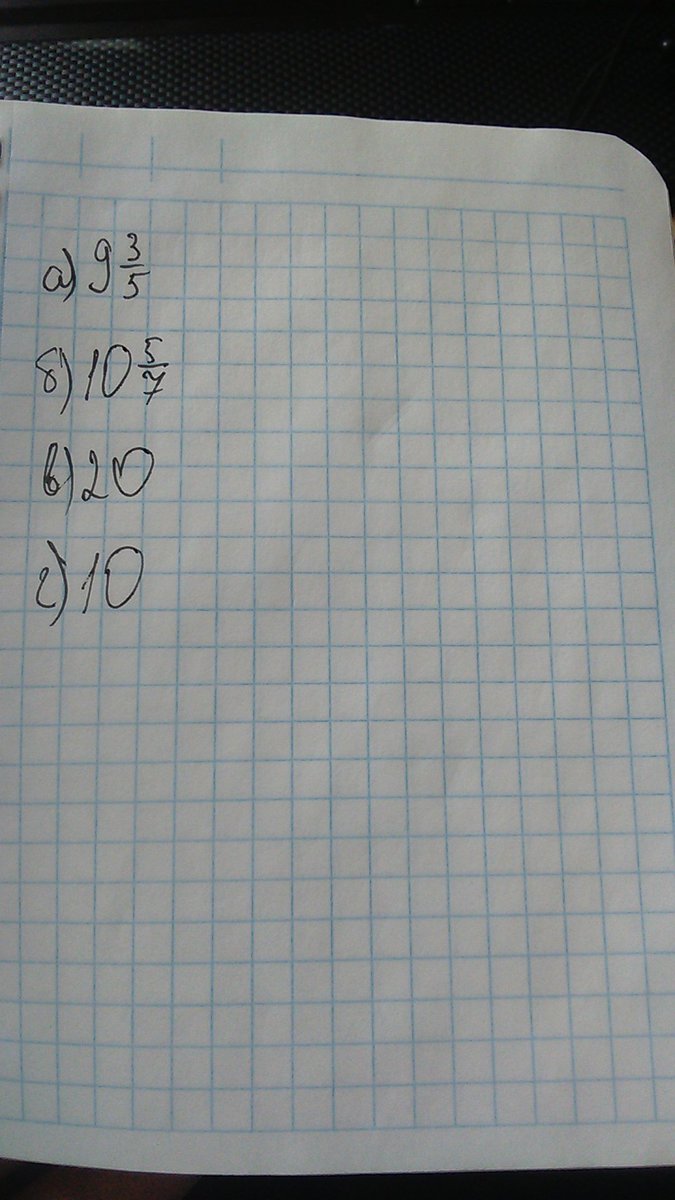 а) 9 3/5
б) 10 5/7
в) 20
г) 10